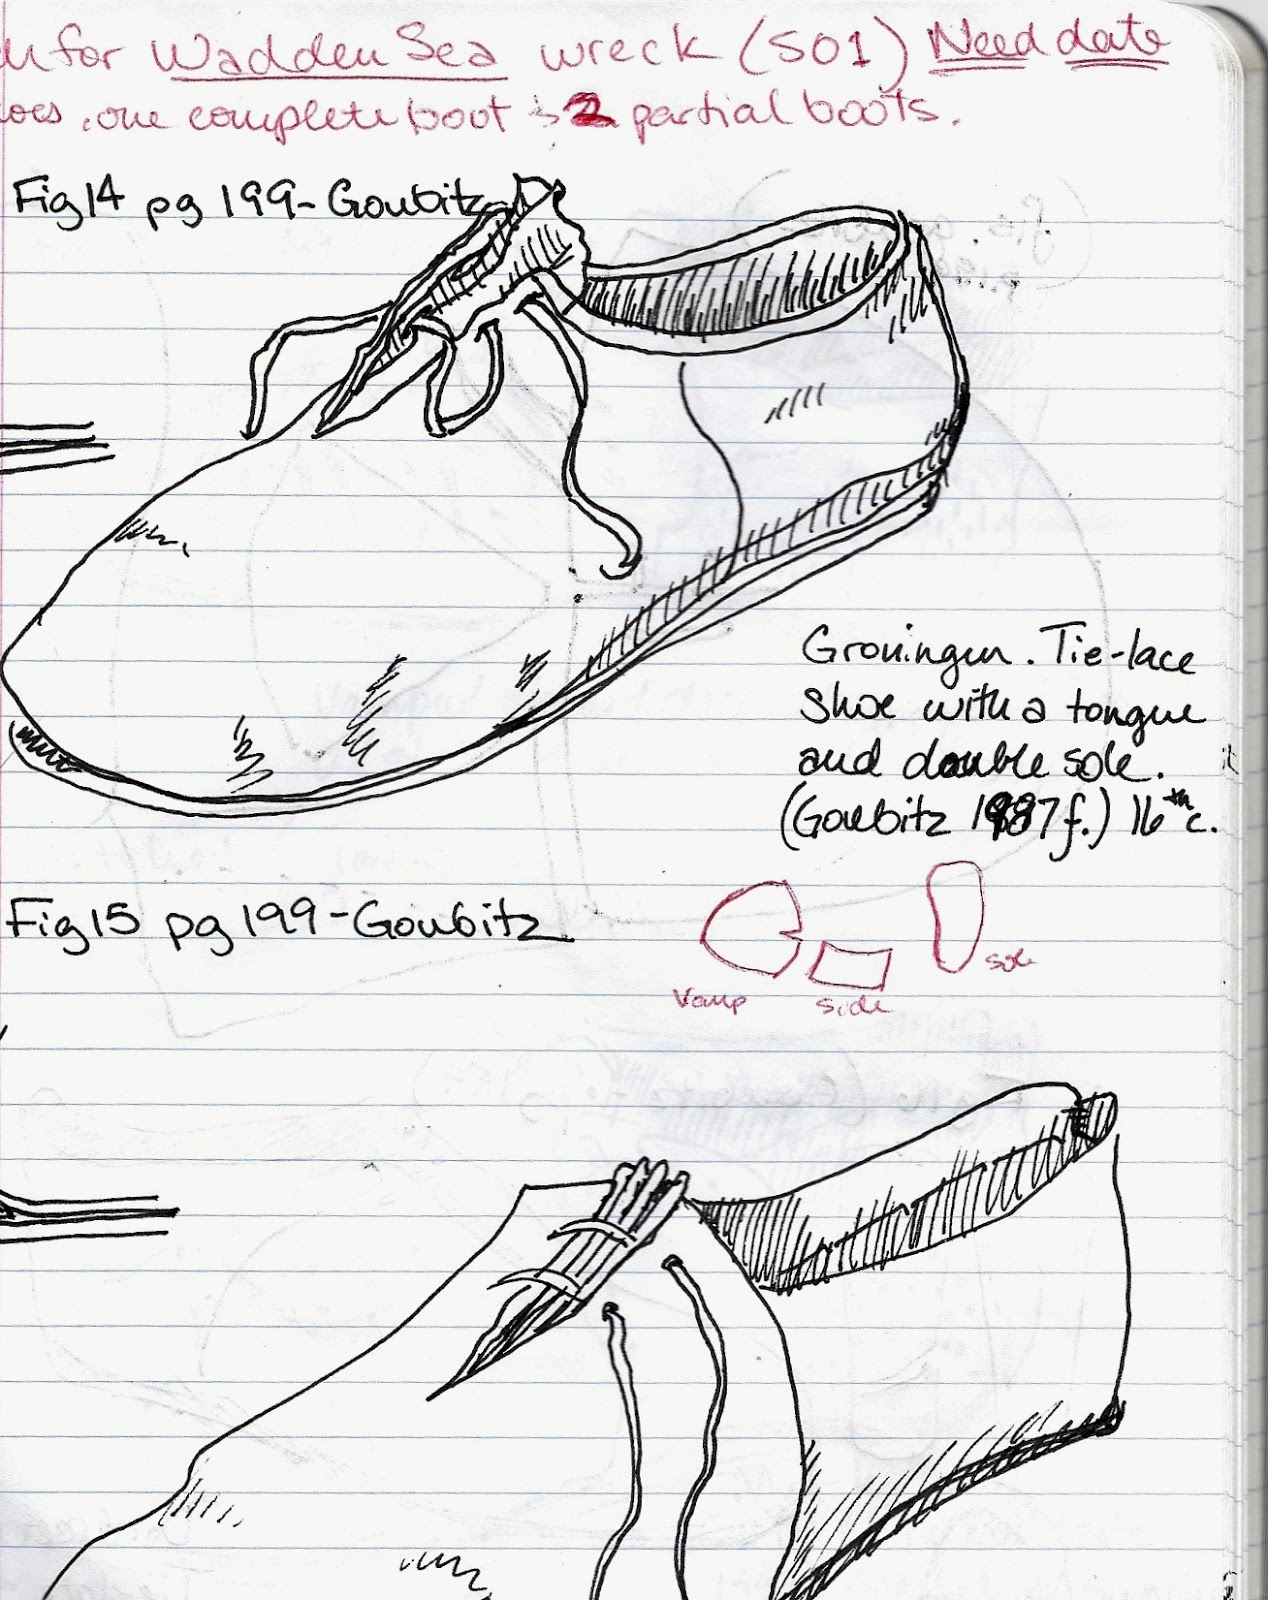 for Wadden Sea wreck (SO1) Need date
one complete boot & 2 partial boots.
Fig 14 pg 199-Goubitz
Groningen. Tie-lace
shoe with a tongue
and double sole.
(Goubitz 1987 f.) 16th c.
Fig 15 pg 199-Goubitz
Vamp
side
sole